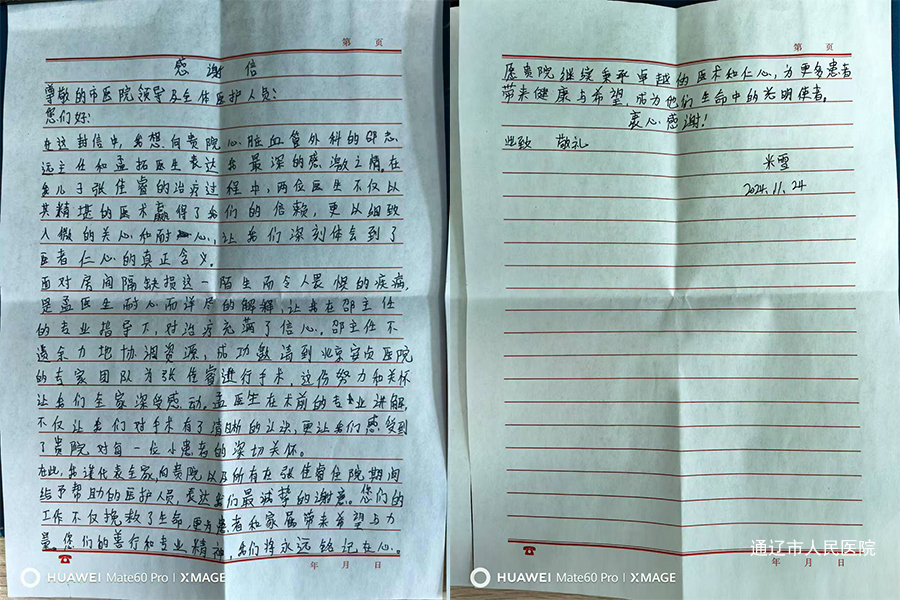 第 页
感谢信
尊敬的市医院领导及全体医护人员:
您们好:
在这封信中,我想向贵院心脏血管外科的邵志
远主任和孟拓医生表达我最深的感激之情。在
我儿子张佳睿的治疗过程中,两位医生不仅以
其精堪的医术赢得了我们的信赖,更以细致
入微的关心和耐心,让我们深刻体会到了
医者仁心的真正含义。
面对房间隔缺损这一陌生而令人畏惧的疾病,
是孟医生耐心而详尽的解释,让我在邵主任
的专业指导下,对治疗充满了信心。邵主任不
遗余力地协调资源,成功邀请到北京安贞医院
的专家团队为张佳睿进行手术,这份努力和关怀
让我们全家深受感动。孟医生在术前的专业讲解,
不仅让我们对手术有了清晰的认识,更让我们感受到
了贵院对每一位小患者的深切关怀。
在此,我谨代表全家,向贵院以及所有在张佳睿住院期间
给予帮助的医护人员,表达我们最诚挚的谢意。您们的
工作不仅挽救了生命,更为患者和家属带来希望与力
量。您们的善行和专业精神,我们将永远铭记在心。
年 月 日
HUAWEI Mate60 Pro | XMAGE
第 页
愿贵院继续秉承卓越的医术和仁心,为更多患者
带来健康与希望,成为他们生命中的光明使者。
衷心感谢!
此致 敬礼
米雪
2024.11.24
年 月 日
HUAWEI Mate60 Pro | XMAGE
通辽市人民医院